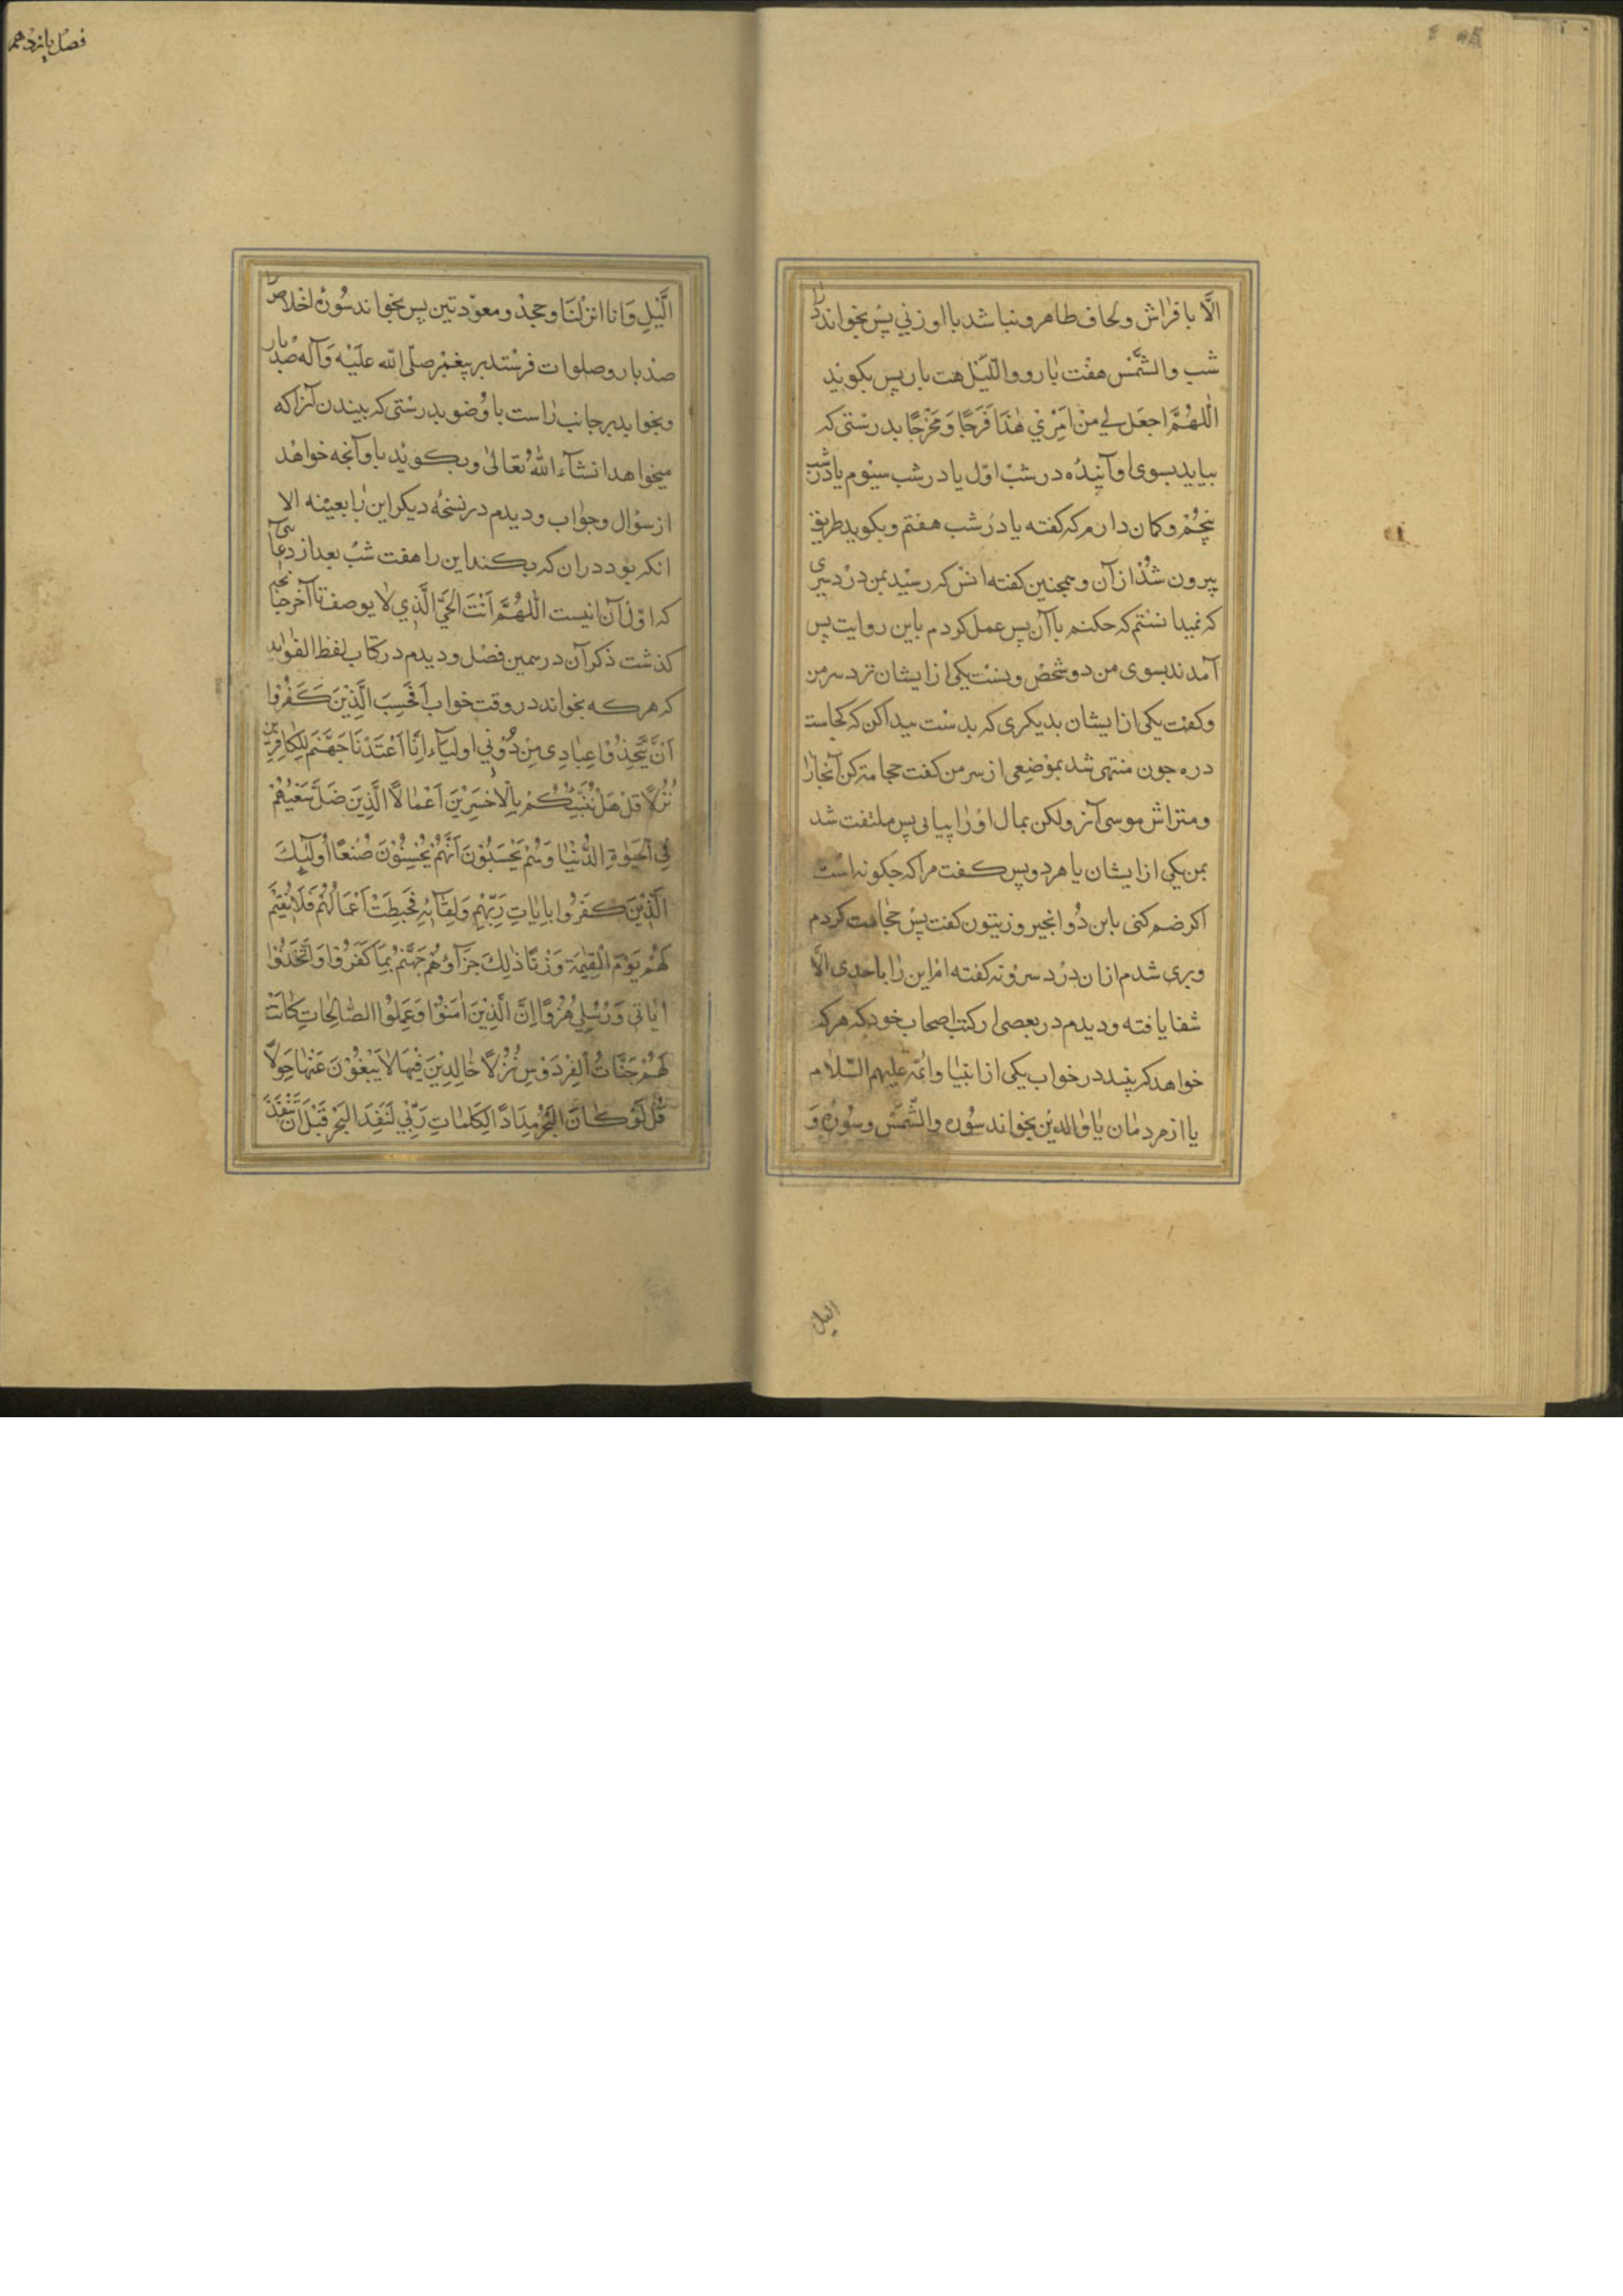 الّا با فراش و لحاف طاهر و نباشد با او زنی پس بخواند در
شب والشّمس هفت بار و واللّیل هفت بار پس بکوید
اللّهمّ اجعل لی من امری هذا فرجا و مخرجا بدرستی که
بیاید بسوی او آینده در شب اوّل یا در شب سیوم یا در شب
پنجم و کمان دارم که کفته یا در شب هفتم و بکوید طریق
بیرون شد از آن و همچنین کفته انس که رسید بمن درد سری
که نمیدانستم که حکنم با آن پس عمل کردم باین روایت پس
آمدند بسوی من دو شخص و نشست یکی از ایشان نزد سر من
و کفت یکی از ایشان بدیکری که بدست پیدا کن که کجاست
درد جون منتهی شد بموضعی از سر من کفت حجامت کن آنجا را
و متراش موسی آنرا ولکن بمال او را پس ملتفت شد
بمن یکی از ایشان یا هر دو پس کفت مرا که چکونه است
اکر ضم کنی باین دو انجیر و زیتون کفت پس حجامت کردم
و بری شدم از ان درد سر و نه کفته ام این را با حدی الّا
شفا یافته و دیدم در بعضی از کتب اصحاب خود که هر که
خواهد که ببیند در خواب یکی از انبیا و ائمّه علیهم السّلام
یا از مردمان یا والدین بخواند سوره والشّمس و سوره و
الیل
فصل یازدهم
اللّیل و انا انزلنا و جحد و معوّذتین پس بخواند سوره اخلاص را
صد بار و صلوات فرستد بر پیغمبر صلّی الله علیه و آله صد بار
و بخوابد بر جانب راست با وضو بدرستی که بیند آنرا که
میخواهد انشآء الله تعالی و بکوید باو آنچه خواهد
از سؤال و جواب و دیدم در نسخه دیکر این را بعینه الا
انکه بود در ان که بکند این را هفت شب بعد از دعائی
که اوّل آن اینست اللّهمّ انت الحیّ الّذی لا یوصف تا آخر
کذشت ذکر آن در همین فصل و دیدم در کتاب لفظ الفواید
که هر که بخواند در وقت خواب افحسب الّذین کفروا
انّ یتّخذوا عبادی من دونی اولیآء انّا اعتدنا جهنّم للکافرین
نزلا قل هل ننبّئکم بالاخسرین اعمالا الّذین ضلّ سعیهم
فی الحیوة الدّنیا و هم یحسبون انّهم یحسنون صنعا اولئک
الّذین کفروا بایات ربّهم و لقآئه فحبطت اعمالهم فلا نقیم
لهم یوم القیمة وزنا ذلک جزآؤهم جهنّم بما کفروا و اتّخذوا
ایاتی و رسلی هزوا انّ الّذین امنوا و عملوا الصّالحات کانت
لهم جنّات الفردوس نزلا خالدین فیها لا یبغون عنها حولا
قل لو کان البحر مدادا لکلمات ربّی لنفد البحر قبل ان تنفد